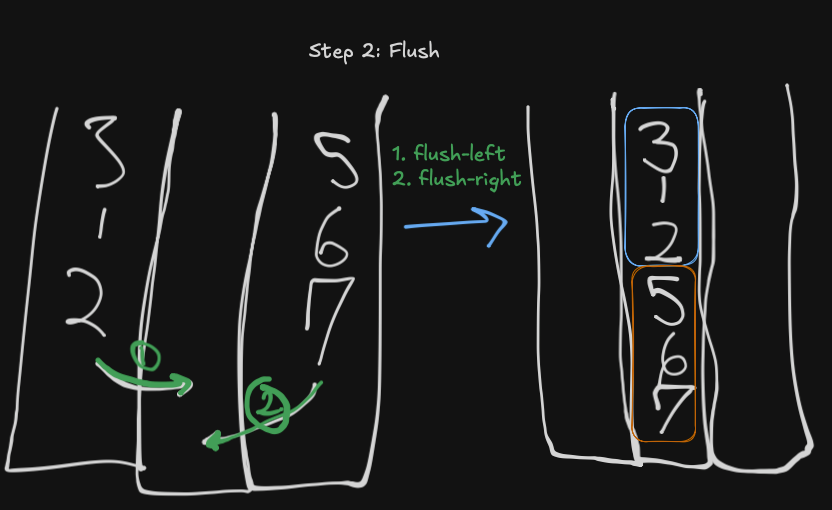 Step 2: Flush
3
1
2
5
6
7
1. flush-left
2. flush-right
1
2
3
1
2
5
6
7